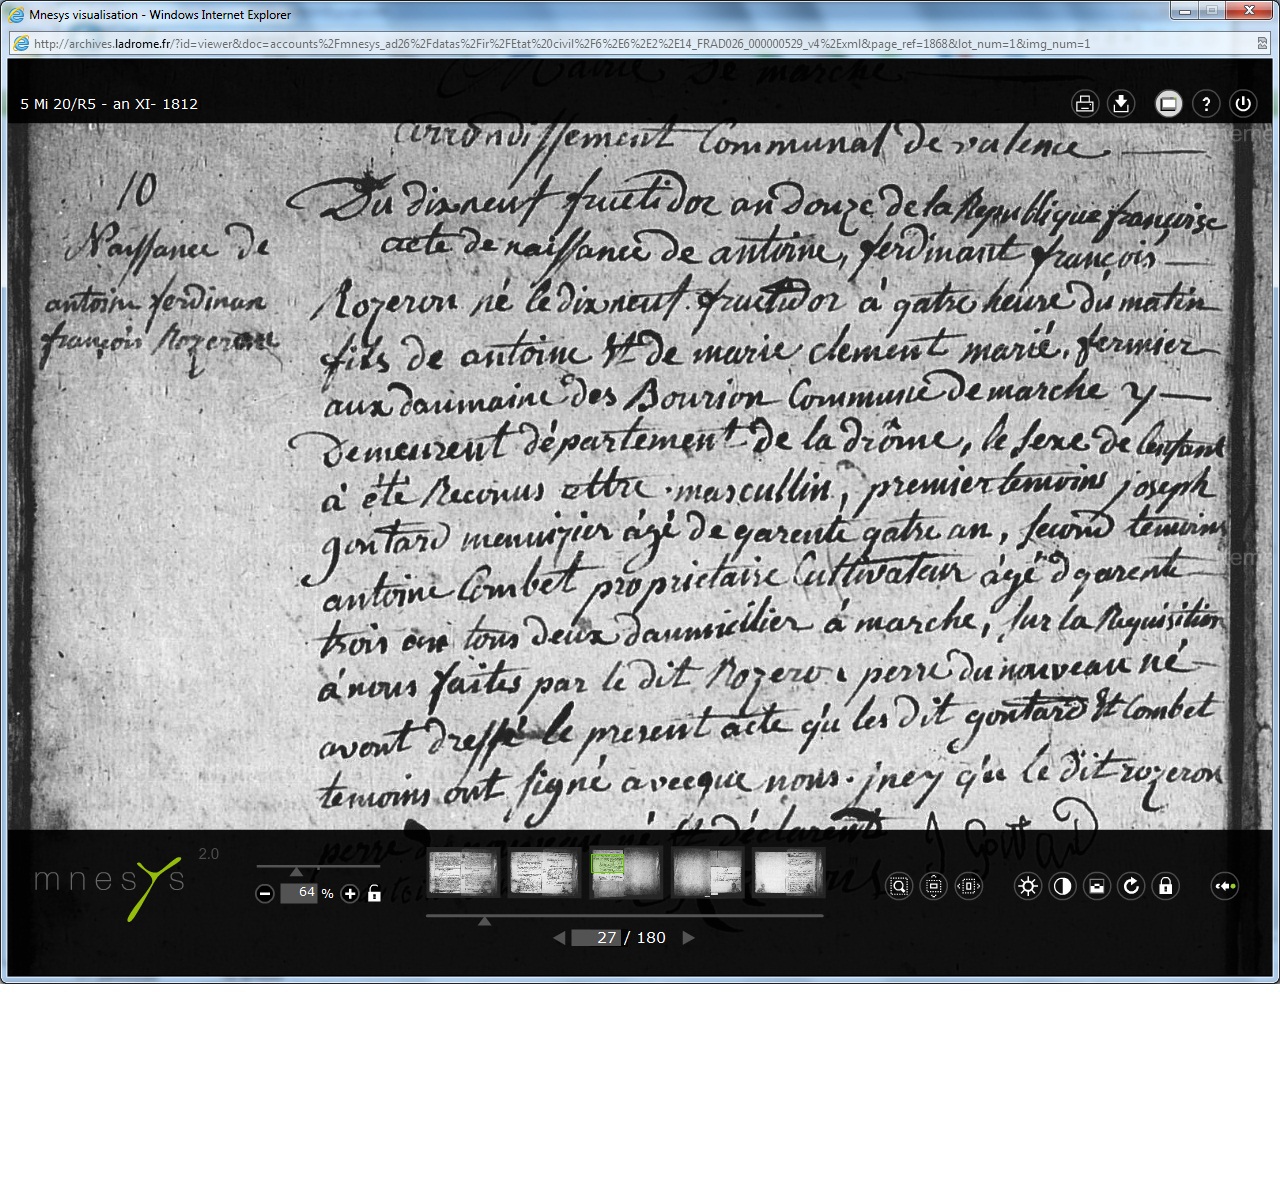 Mnesys visualisation - Windows Internet Explorer
http://archives.ladrome.fr/?id=viewer&doc=accounts%2Fmnesys_ad26%2Fdatas%2Fir%2FEtat%20civil%2F6%2E6%2E2%2E14_FRAD026_000000529_v4%2Exml&page_ref=1868&lot_num=1&img_num=1
Mairie de marche
5 Mi 20/R5 - an XI- 1812
arrondissement Communal de valence
10
Naissance de
antoine ferdinan
françois Rozeron
Du dixneuf fructidor an douze de la Republique françoise
acte de naissance de antoine, ferdinant françois
Rozeron né le dixneuf fructidor à qatre heure du matin
fils de antoine Et de marie clement marié, fermier
aux daumaine des Bourion Commune de marche y
Demeurent département de la drôme, le sexe de lenfant
à été Reconus ettre masculin, premier temoins joseph
gontard menuizier âgé de qarente qatre an, second temoins
antoine Combet proprietaire Cultivateur âgé d qarente
trois an tous deux daumicilier à marche, sur la Requisition
à nous faites par le dit Rozero perre du nouveau né
avont dressé le present acte qu les dit gontard Et Combet
temoins ont signé avecque nous. jney qu le dit rozeron
perre du nouveau né Et déclarent
J Gottard
mnesys 2.0
64 %
27 / 180